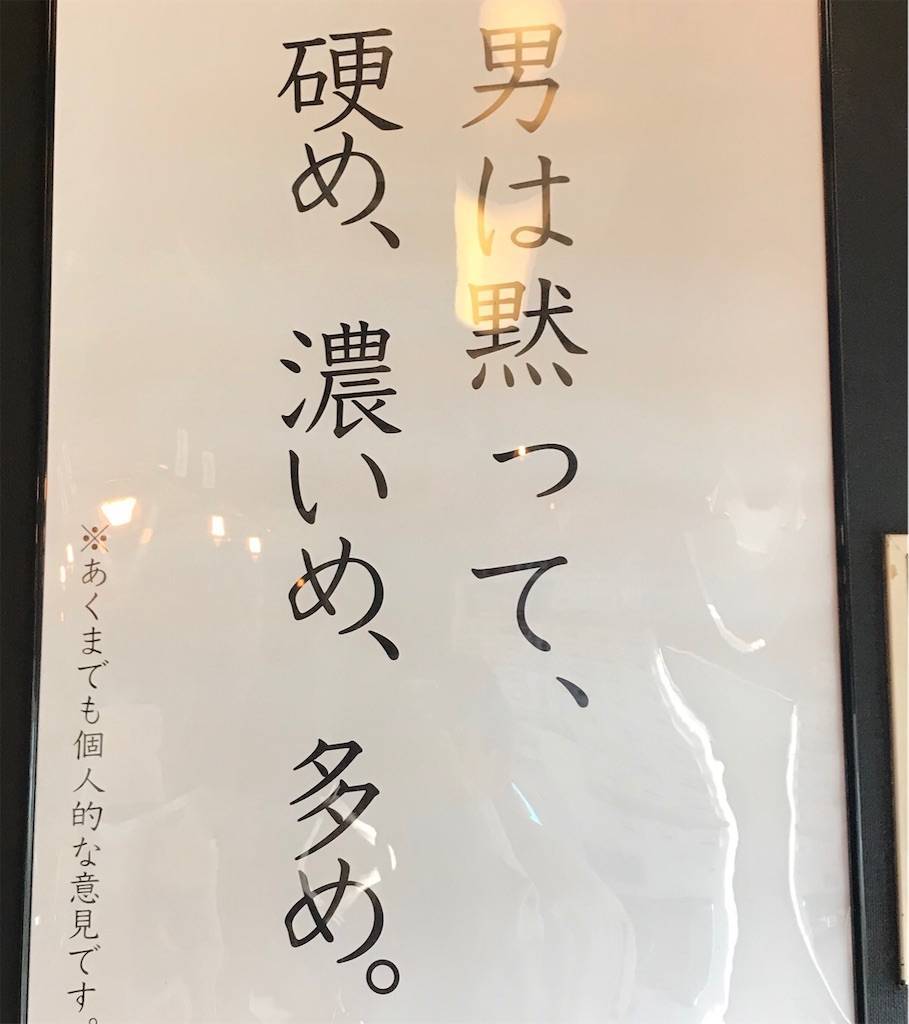 男は黙って、
硬め、濃いめ、多め。
※あくまでも個人的な意見です。